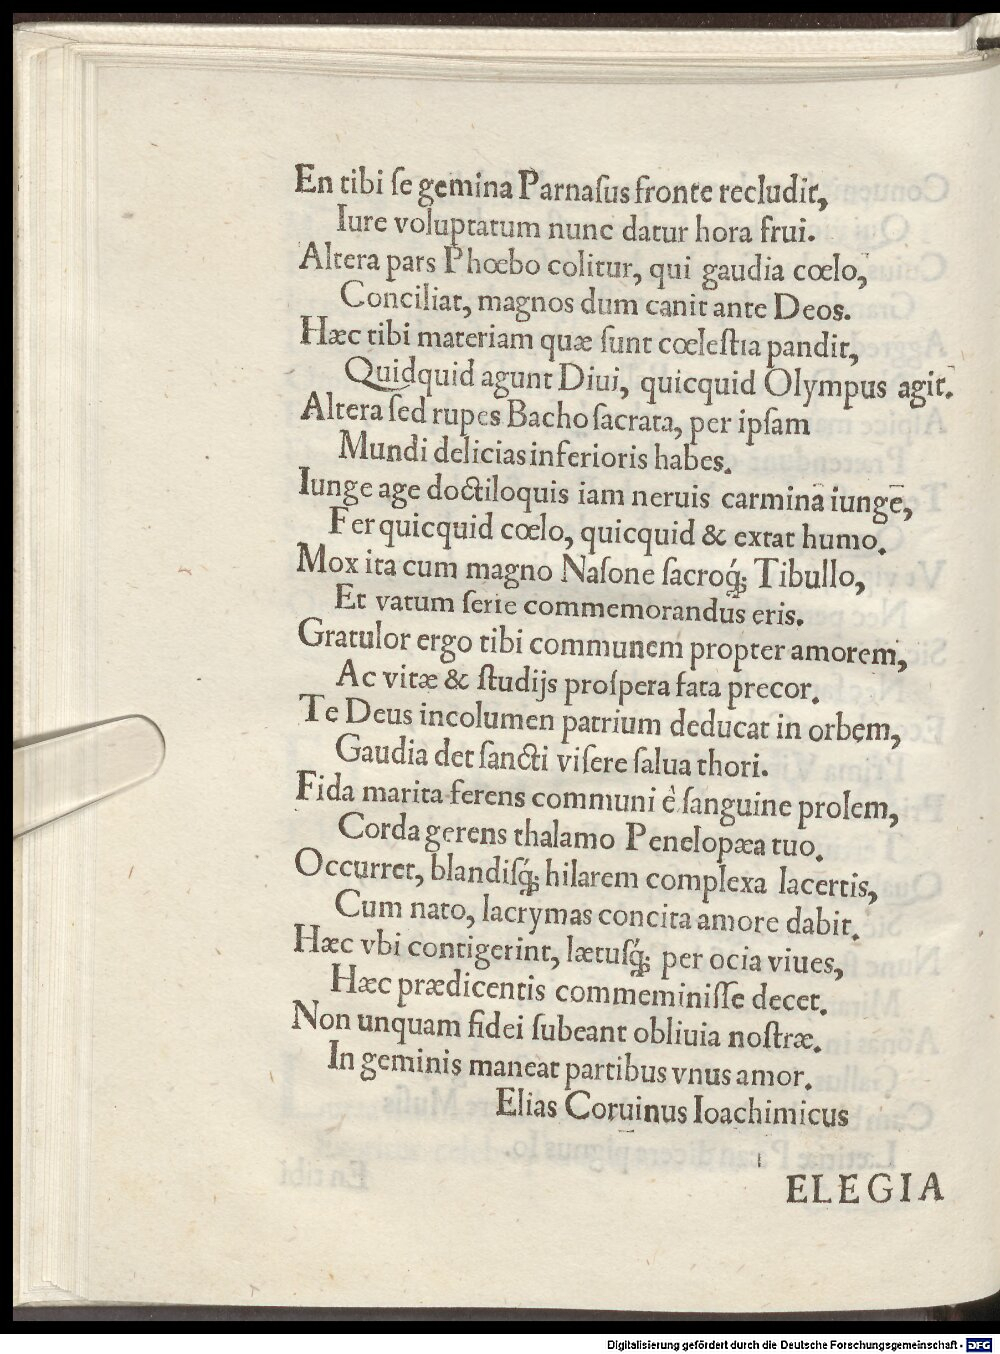 En tibi ſe gemina Parnaſus fronte recludit,
Iure voluptatum nunc datur hora frui.
Altera pars Phœbo colitur, qui gaudia cœlo,
Conciliat, magnos dum canit ante Deos.
Hæc tibi materiam quæ ſunt cœleſtia pandit,
Quidquid agunt Diui, quicquid Olympus agit.
Altera ſed rupes Bacho ſacrata, per ipſam
Mundi delicias inferioris habes.
Iunge age doctiloquis iam neruis carmina iunge,
Fer quicquid cœlo, quicquid & extat humo.
Mox ita cum magno Naſone ſacroq́; Tibullo,
Et vatum ſerie commemorandus eris.
Gratulor ergo tibi communem propter amorem,
Ac vitæ & ſtudijs proſpera fata precor.
Te Deus incolumen patrium deducat in orbem,
Gaudia det ſancti viſere ſalua thori.
Fida marita ferens communi è ſanguine prolem,
Corda gerens thalamo Penelopæa tuo.
Occurret, blandiſq́; hilarem complexa lacertis,
Cum nato, lacrymas concita amore dabit.
Hæc vbi contigerint, lætuſq́; per ocia viues,
Hæc prædicentis commeminiſſe decet.
Non unquam fidei ſubeant obliuia noſtræ.
In geminis maneat partibus vnus amor.
Elias Coruinus Ioachimicus
ELEGIA
Digitalisierung gefördert durch die Deutsche Forschungsgemeinschaft - DFG